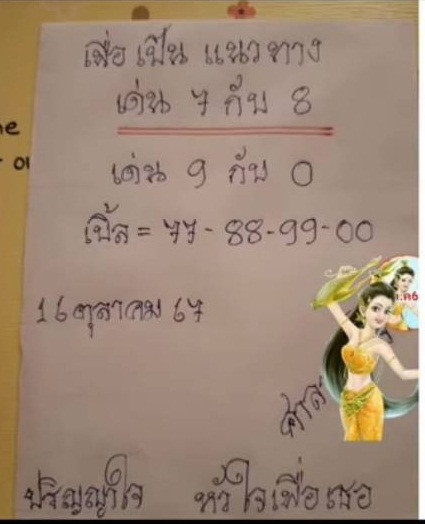 เพื่อเป็น แนวทาง
เด่น 7 กับ 8
เด่น 9 กับ 0
เบิ้ล = 77-88-99-00
16 ตุลาคม 67
ปริญญาใจ หัวใจเพื่อเธอ